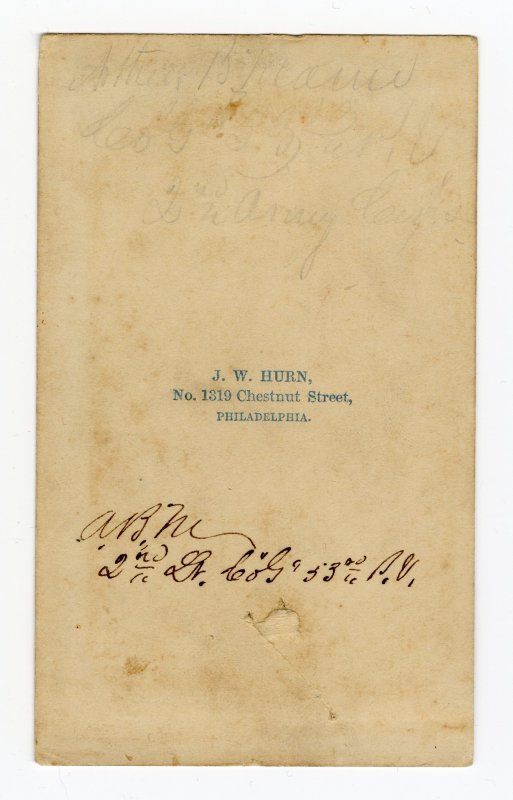 Arthur B
Co "G"
2nd Army Corps
J. W. HURN,
No. 1319 Chestnut Street,
PHILADELPHIA.
A.B.M
2nd Lt. Co "G" 53rd P.V.